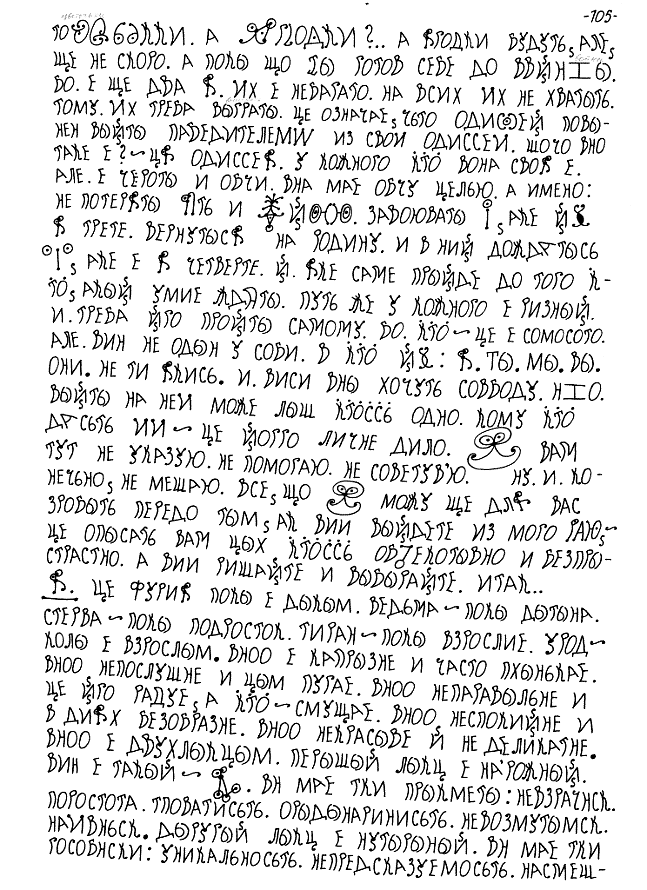 -105-
А ... А ... БУДУТЬ, АЛЕ,
ЩЕ НЕ СКОРО. А ПОКЫ ЩО ... ГОТОВ СЕБЕ ДО
ВО. Е ЩЕ ДВА Я. ИХ Е НЕБАГАТО. НА ВСИХ ИХ НЕ ХВАТЫТЬ.
ТОМУ. ИХ ТРЕБА ВЫГРАТЫ. ЦЕ ОЗНАЧАЕ, ЧЬТО ОДИСЕЙ ПОВЫ-
НЕН ВЫЙТЫ ПАБЕДИТЕЛЕМ ИЗ СВОИ ОДИССЕИ. ЩОЧО ВНО
ТАКЕ Е? ~ ЦЯ ОДИССЕЯ. У КОЖНОГО КТО ВОНА СВОЯ Е.
АЛЕ. Е ЧЕРТЫ И ОБЧИ. ВНА МАЕ ОБЧУ ЦЕЛЬЮ. А ИМЕНО:
НЕ ПОТЕРЯТЫ И ЗАВОЮВАТЫ АКЕ
Я ТРЕТЕ. ВЕРНУТЫСЯ НА РОДИНУ. И В НИЙ ДОЖДАТЫСЬ
АКЕ Е Я ЧЕТВЕРТЕ. Й. ЯКЕ САМЕ ПРЫЙДЕ ДО ТОГО К-
ТО, АКЫЙ УМИЕ ЖДАТЫ. ПУТЬ ЖЕ У КОЖНОГО Е РИЗНЫЙ.
И. ТРЕБА ЙГО ПРОЙТЫ САМОМУ. ВО. КТО ~ ЦЕ Е СОМОСОТО.
АЛЕ. ВИН НЕ ОДЫН У СОВИ. В КТО Я. ТЫ. МЫ. ВЫ.
ОНИ. НЕ ТИ ЯКИСЬ. И. ВИСИ ВНЫ ХОЧУТЬ СОВВОДУ.
ВЫЙТЫ НА НЕИ МОЖЕ ЛЫШ КТОССЬ ОДНО. КОМУ КТО
ДАСЬТЬ ИИ ~ ЦЕ ЙОГГО ЛИЧНЕ ДИЛО. ВАМ
ТУТ НЕ УКАЗУЮ. НЕ ПОМОГАЮ. НЕ СОВЕТУВ'Ю. НУ. И. КО-
НЕЧЬНО, НЕ МЕШАЮ. ВСЕ, ЩО МОЖУ ЩЕ ДЛЯ ВАС
ЗРОБЫТЬ ПЕРЕДО ТЫМ, АК ВИИ ВЫЙДЕТЕ ИЗ МОГО РАЮ, ~
ЦЕ ОПЫСАТЬ ВАМ ЦЫХ КТОССЬ ОБ'ЕКТЫВНО И БЕЗПРЫ-
СТРАСТНО. А ВИИ РИШАЙТЕ И ВЫБЫРАЙТЕ. ИТАК..
Я. ЦЕ ФУРИЯ ПОКЫ Е ДЫКЫМ. ВЕДЬМА ~ ПОКЫ ДЫТЫНА.
СТЕРВА ~ ПОКЫ ПОДРОСТОК. ТИРАН ~ ПОКЫ ВЗРОСЛИЕ. УРОД ~
КОЛЫ Е ВЗРОСЛЫМ. ВНОО Е КАПРЫЗНЕ И ЧАСТО ПХЫНЬКАЕ.
ВНОО НЕПОСЛУШНЕ И ЦЫМ ПУГАЕ. ВНОО НЕПАРАВЫЛЬНЕ И
ЦЕ ЙГО РАДУЕ, А КТО ~ СМУЩАЕ. ВНОО НЕСПОКИЙНЕ И
В ДИЯХ БЕЗОБРАЗНЕ. ВНОО НЕКРАСОВЕ Й НЕ ДЕЛИКАТНЕ.
ВНОО Е ДВУХЛЫКЦЫМ. ПЕРЫШЫЙ ЛЫКЦ Е НАРОЖНЫЙ.
ВИН Е ТАКЫЙ ~ . ВН МАЕ ТКИ ПРЫКМЕТЫ: НЕВЗРАЧНСК.
ПОРОСТОТА. ТЛОВАТИСЬТЬ. ОРЫДЫНАРИНИСЬТЬ. НЕВОЗМУТЫМСК.
НАИВНЬСК. ДЫРУГЫЙ ЛЫКЦ Е НУТЫРЫНЫЙ. ВН МАЕ ТКИ
РОСОВНСКИ: УНИКАЛЬНОСЬТЬ. НЕПРЕДСКАЗУЕМОСЬТЬ. НАСМЕШ-